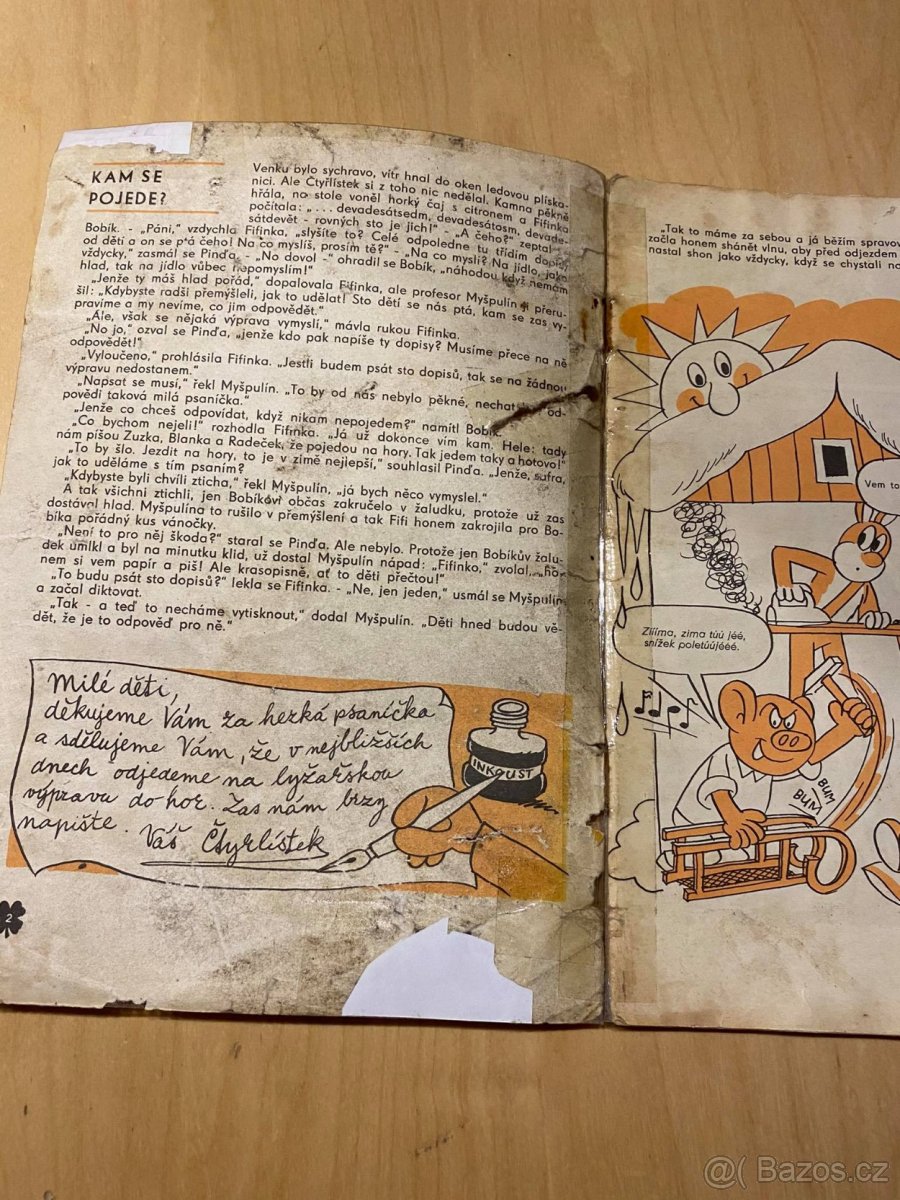 KAM SE
POJEDE?
Venku bylo sychravo, vítr hnal do oken ledovou plíska-
nici. Ale Čtyřlístek si z toho nic nedělal. Kamna pěkně
hřála, na stole voněl horký čaj s citronem a Fifinka
počítala: „ . . . devadesátsedm, devadesátosm, devade-
sátdevět - rovných sto je jich!" - „A čeho?" zeptal se
Bobík. - „Páni," vzdychla Fifinka, „slyšíte to? Celé odpoledne tu třídím dopisy
od dětí a on se ptá čeho! Na co myslíš, prosím tě?" - „Na co myslí? Na jídlo, jako
vždycky," zasmál se Pinďa. - „No dovol -" ohradil se Bobík, „náhodou když nemám
hlad, tak na jídlo vůbec nepomyslím!"
„Jenže ty máš hlad pořád," dopalovala Fifinka, ale profesor Myšpulín ji přeru-
šil: „Kdybyste radši přemýšleli, jak to udělat! Sto dětí se nás ptá, kam se zas vy-
pravíme a my nevíme, co jim odpovědět."
„Ale, však se nějaká výprava vymyslí," mávla rukou Fifinka.
„No jo," ozval se Pinďa, „jenže kdo pak napíše ty dopisy? Musíme přece na ně
odpovědět!"
„Vyloučeno," prohlásila Fifinka. „Jestli budem psát sto dopisů, tak se na žádnou
výpravu nedostanem."
„Napsat se musí," řekl Myšpulín. „To by od nás nebylo pěkné, nechat od-
povědi taková milá psaníčka."
„Jenže co chceš odpovídat, když nikam nepojedem?" namítl Bobík.
„Co bychom nejeli!" rozhodla Fifinka. „Já už dokonce vím kam. Hele: tady
nám píšou Zuzka, Blanka a Radeček, že pojedou na hory. Tak jedem taky a hotovo!"
„To by šlo. Jezdit na hory, to je v zimě nejlepší," souhlasil Pinďa. „Jenže, safra,
jak to uděláme s tím psaním?
„Kdybyste byli chvíli zticha," řekl Myšpulín, „já bych něco vymyslel."
A tak všichni ztichli, jen Bobíkovi občas zakručelo v žaludku, protože už zas
dostával hlad. Myšpulína to rušilo v přemýšlení a tak Fifi honem zakrojila pro Bo-
bíka pořádný kus vánočky.
„Není to pro něj škoda?" staral se Pinďa. Ale nebylo. Protože jen Bobíkův žalu-
dek umlkl a byl na minutku klid, už dostal Myšpulín nápad: „Fifinko," zvolal, „ho-
nem si vem papír a piš! Ale krasopisně, ať to děti přečtou!"
„To budu psát sto dopisů?" lekla se Fifinka. - „Ne, jen jeden," usmál se Myšpulín
a začal diktovat.
„Tak - a teď to necháme vytisknout," dodal Myšpulín. „Děti hned budou vě-
dět, že je to odpověď pro ně."
Milé děti,
děkujeme Vám za hezká psaníčka
a sdělujeme Vám, že v nejbližších
dnech odjedeme na lyžařskou
výpravu do hor. Zas nám brzy
napište. Váš Čtyrlístek
INKOUST
2
„Tak to máme za sebou a já běžím spravov
začla honem shánět vlnu, aby před odjezdem
nastal shon jako vždycky, když se chystali na
Vem to
Zíííma, zima túú jéé,
snížek poletúújééé.
BUM
BUM
@( Bazos.cz